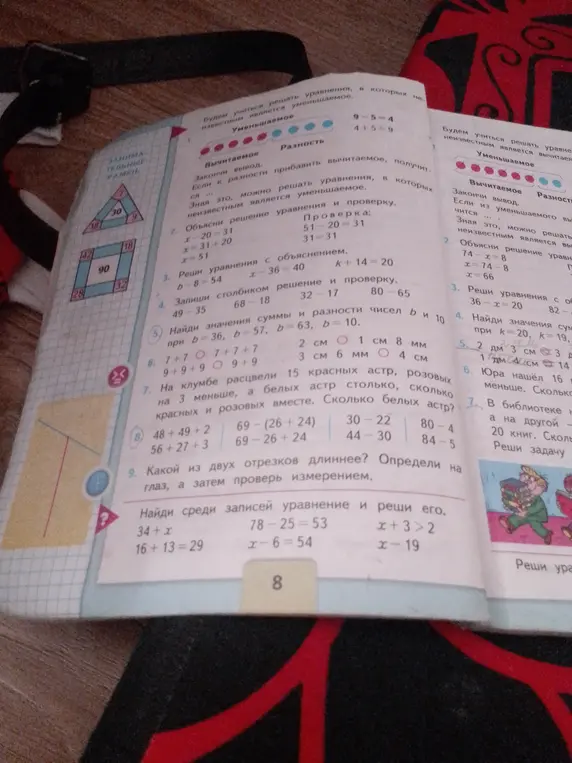 Будем учиться решать уравнения, в которых не-
известным является уменьшаемое.
Уменьшаемое
9 − 5 = 4
4 + 5 = 9
Вычитаемое Разность
Закончи вывод.
Если к разности прибавить вычитаемое, получит-
ся ... .
Зная это, можно решать уравнения, в которых
неизвестным является уменьшаемое.
2. Объясни решение уравнения и проверку.
x − 20 = 31 Проверка:
x = 31 + 20 51 − 20 = 31
x = 51 31 = 31
3. Реши уравнения с объяснением.
b − 8 = 54 x − 36 = 40 k + 14 = 20
4. Запиши столбиком решение и проверку.
49 − 35 68 − 18 32 − 17 80 − 65
5. Найди значения суммы и разности чисел b и 10
при b = 36, b = 57, b = 63, b = 10.
6. 7 + 7 ○ 7 + 7 + 7 2 см ○ 1 см 8 мм
9 + 9 + 9 ○ 9 + 9 3 см 6 мм ○ 4 см
7. На клумбе расцвели 15 красных астр, розовых
на 3 меньше, а белых астр столько, сколько
красных и розовых вместе. Сколько белых астр?
8. 48 + 49 + 2 69 − (26 + 24) 30 − 22 80 − 4
56 + 27 + 3 69 − 26 + 24 44 − 30 84 − 5
9. Какой из двух отрезков длиннее? Определи на
глаз, а затем проверь измерением.
? Найди среди записей уравнение и реши его.
34 + x 78 − 25 = 53 x + 3 > 2
16 + 13 = 29 x − 6 = 54 x − 19
8
ЗАНИМА-
ТЕЛЬНЫЕ
РАМКИ
30
90
18
28
32
Будем учиться решать уравне
неизвестным является вычитае
Уменьшаемое
Вычитаемое Разност
Закончи вывод.
Если из уменьшаемого вы
чится ... .
Зная это, можно решать
неизвестным является вы
2. Объясни решение урав
74 − x = 8
x = 74 − 8
x = 66
3. Реши уравнения с о
36 − x = 20 82 −
4. Найди значения су
при k = 20, k = 19,
5. 2 дм 3 см 3 д
1 дм 4 см 14
6. Юра нашёл 16
меньше. Сколько
7. В библиотеке
а на другой —
20 книг. Скол
Реши задачу
Реши ура